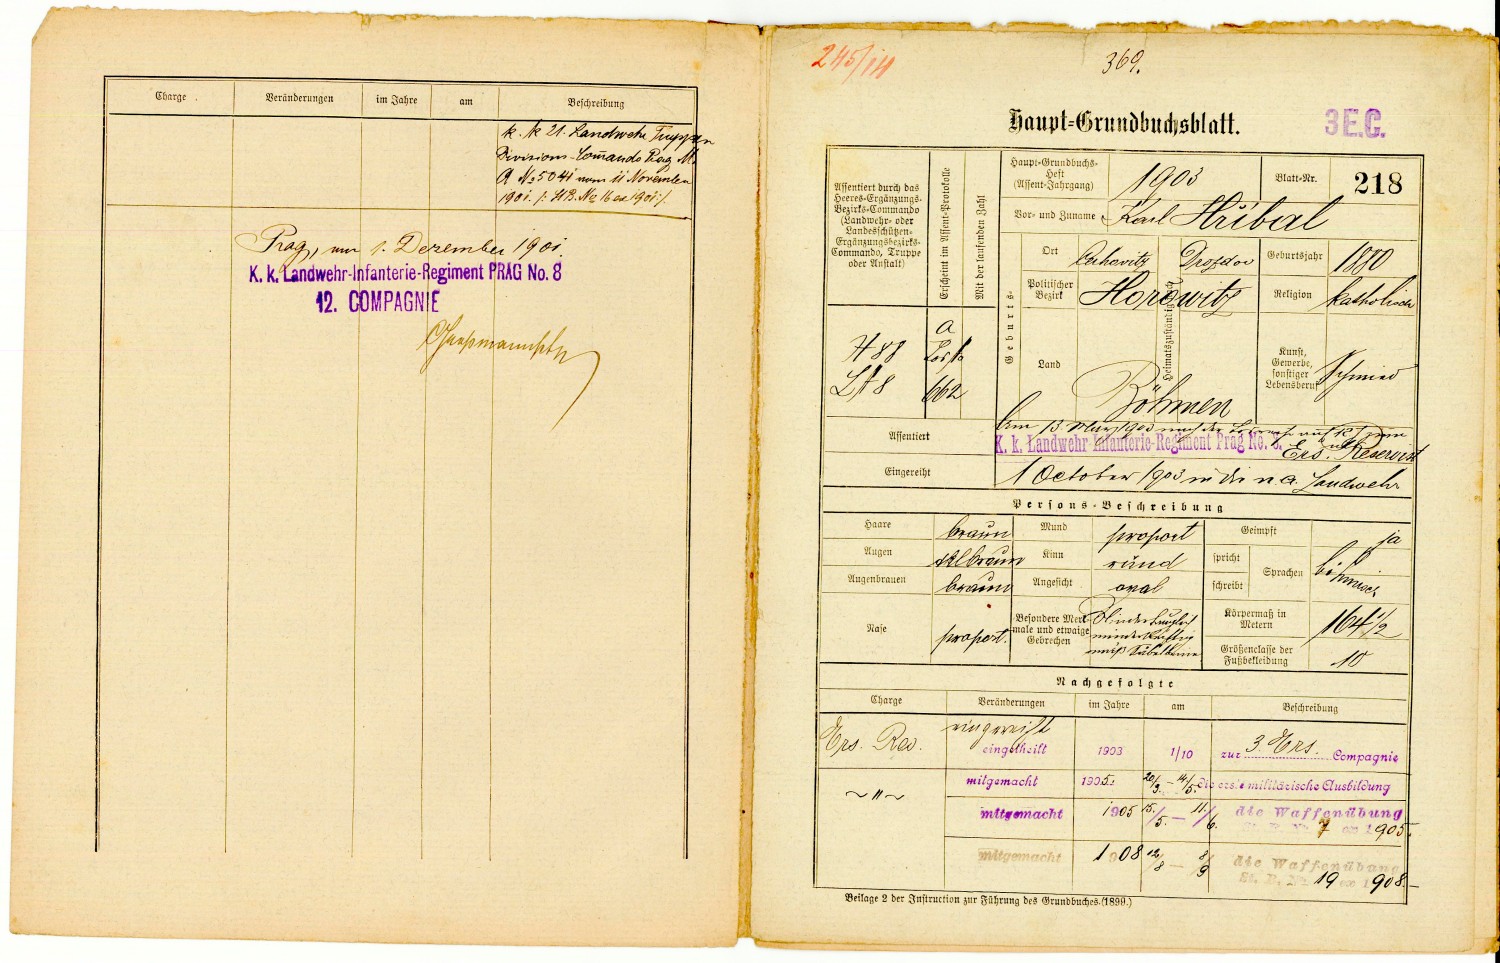 Charge
Veränderungen
im Jahre
am
Beschreibung
k. k 21. Landwehr Truppen
Divisions-Commando Prag M.
A No 5041 vom 11 November
1901.
Prag, am 1. Dezember 1901.
K. k. Landwehr-Infanterie-Regiment PRAG No. 8
12. COMPAGNIE
245/14
369.
Haupt=Grundbuchsblatt.
3E.C.
Assentiert durch das
Heeres-Ergänzungs-
Bezirks-Commando
(Landwehr- oder
Landesschützen-
Ergänzungsbezirks-
Commando, Truppe
oder Anstalt)
Erscheint im Assent-Protokolle
Mit der laufenden Zahl
Haupt-Grundbuchs-
Heft
(Assent-Jahrgang)
1903
Blatt-Nr.
218
Vor- und Zuname
Karl Hříbal
Geburts-
Ort
Cerhovitz
Heimatszuständigkeit
Drozdov
Geburtsjahr
1880
Politischer
Bezirk
Horowitz
Religion
katholisch
Land
Böhmen
Kunst,
Gewerbe,
sonstiger
Lebensberuf
Schmied
H 88
a
662
Assentiert
Am 13. März 1903
K. k. Landwehr-Infanterie-Regiment Prag No. 8.
Ers. Reservist
Eingereiht
1 October 1903 in die n. a. Landwehr
Persons-Beschreibung
Haare
braun
Mund
proport
Geimpft
ja
Augen
Kinn
rund
spricht
schreibt
Sprachen
böhmisch
Augenbrauen
braun
Angesicht
oval
Nase
proport.
Besondere Merk-
male und etwaige
Gebrechen
Körpermaß in
Metern
164 1/2
Größenclasse der
Fußbekleidung
10
Nachgefolgte
Charge
Veränderungen
im Jahre
am
Beschreibung
Ers. Res.
eingereiht
eingetheilt
1903
1/10
zur 3. Ers. Compagnie
mitgemacht
1905.
20/3. — 14/5.
die erste militärische Ausbildung
~ " ~
mitgemacht
1905
15/5. — 11/6.
die Waffenübung
St. B. No 7 ex 1905.
mitgemacht
1908
12/8 — 8/9
die Waffenübung
St. B. No 19 ex 1908.
Beilage 2 der Instruction zur Führung des Grundbuches.(1899.)